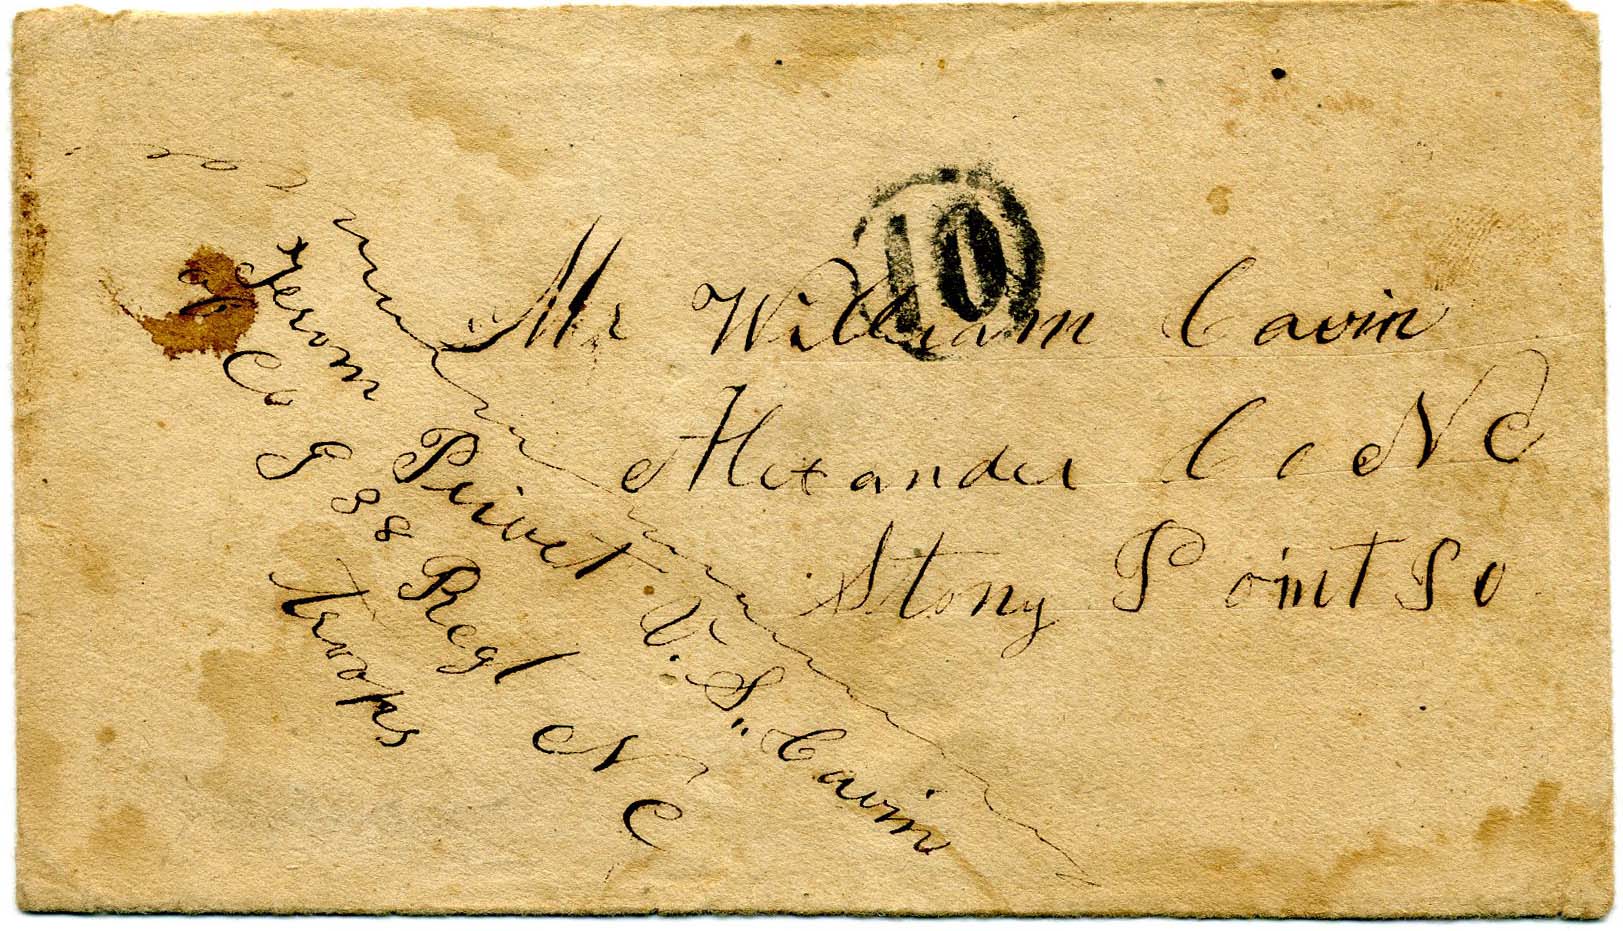 10
Mr William Cavin
Alexander Co N C
Stony Point P O
From Privet V. S. Cavin
Co G 38 Regt N C
troops